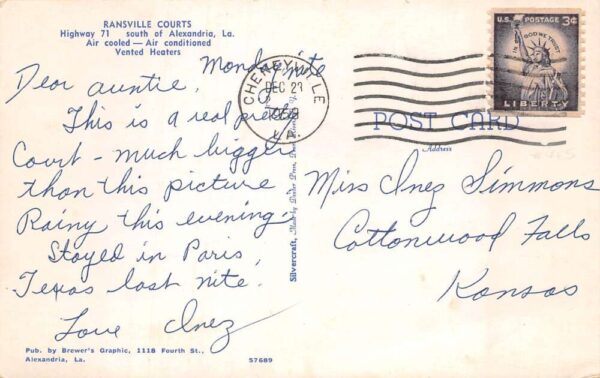 RANSVILLE COURTS
Highway 71 south of Alexandria, La.
Air cooled — Air conditioned
Vented Heaters
Monday nite
Dear auntie,
This is a real pretty
Court - much bigger
than this picture
Rainy this evening.
Stayed in Paris,
Texas last nite.
Love Inez
Pub. by Brewer's Graphic, 1118 Fourth St.,
Alexandria, La.
57689
Silvercraft, Made by Dexter Press,
CHENEYVILLE
DEC 23
LA.
U.S. POSTAGE 3¢
IN GOD WE TRUST
LIBERTY
POST CARD
Address
Miss Inez Simmons
Cottonwood Falls
Kansas